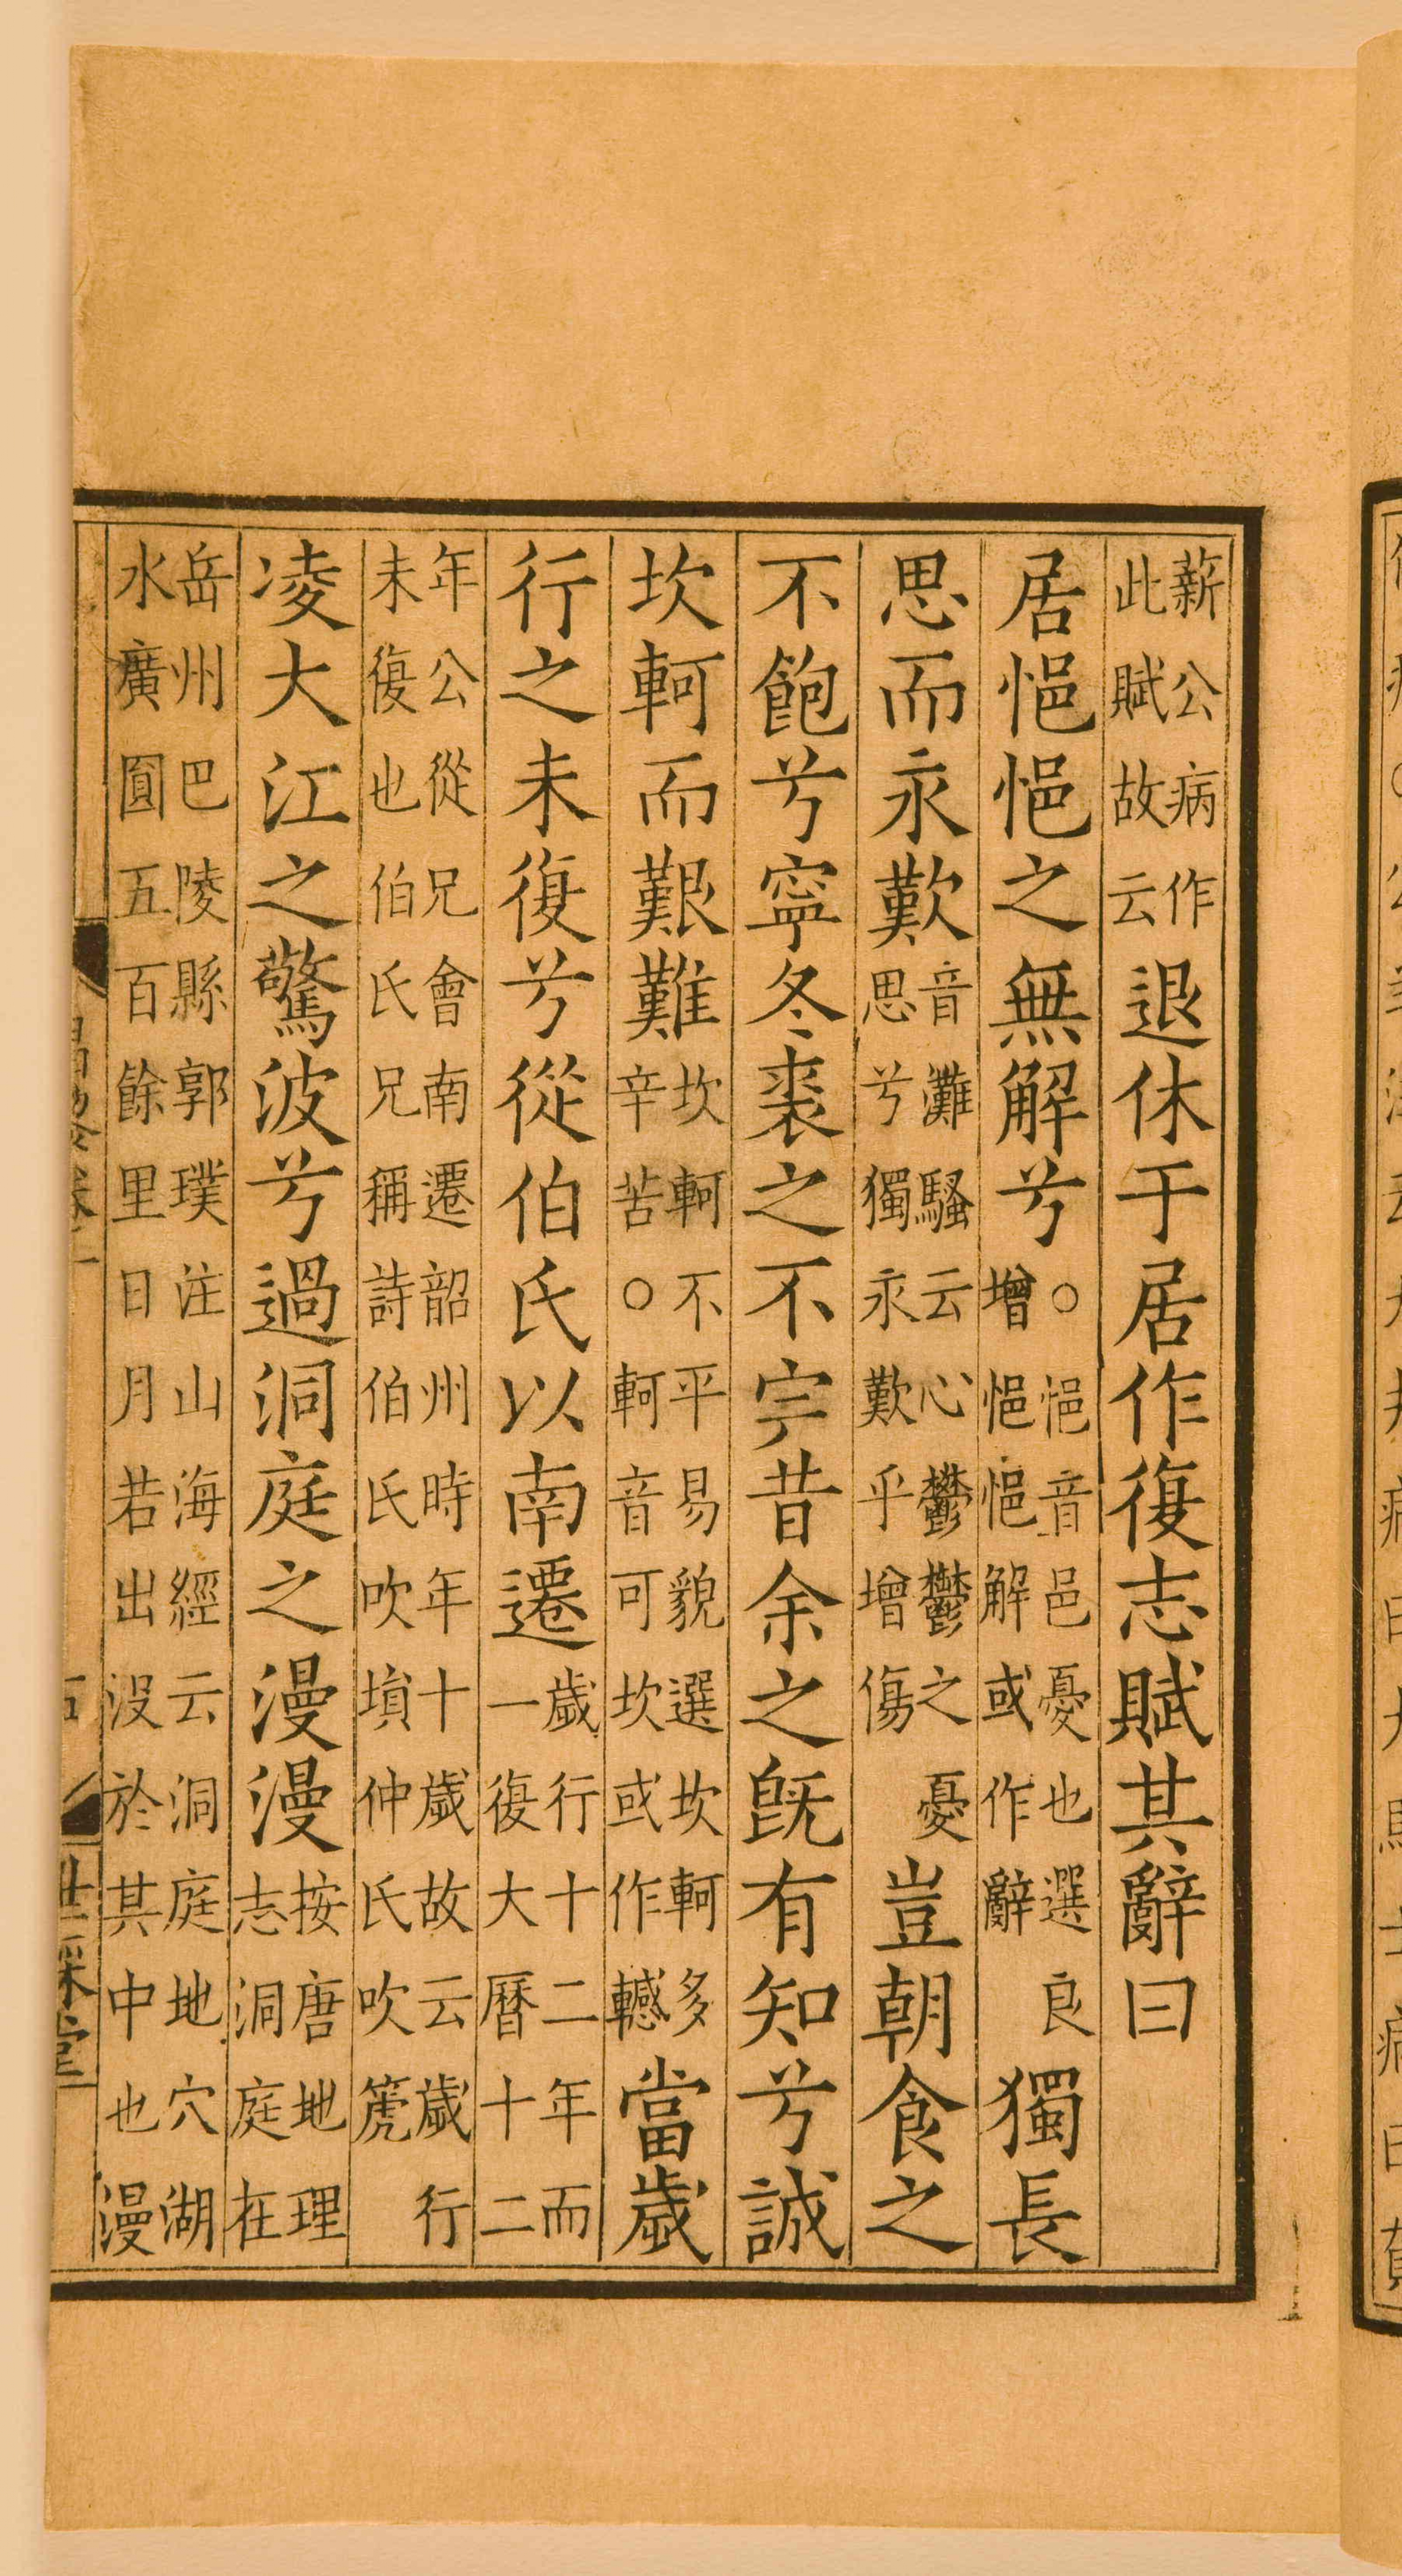 薪公病作此賦故云退休于居作復志賦其辭曰
居悒悒之無解兮○悒音邑憂也選良增悒悒解或作辭獨長
思而永歎音灘騷云心鬱鬱之憂思兮獨永歎乎增傷豈朝食之
不飽兮寧冬裘之不完昔余之旣有知兮誠
坎軻而艱難坎軻不平易貌選坎軻多辛苦○軻音可坎或作轗當歲
行之未復兮從伯氏以南遷歲行十二年而一復大曆十二
年公從兄會南遷韶州時年十歲故云歲行未復也伯氏兄稱詩伯氏吹塤仲氏吹篪
凌大江之驚波兮過洞庭之漫漫按唐地理志洞庭在
岳州巴陵縣郭璞注山海經云洞庭地穴湖水廣圓五百餘里日月若出没於其中也漫
世綵堂